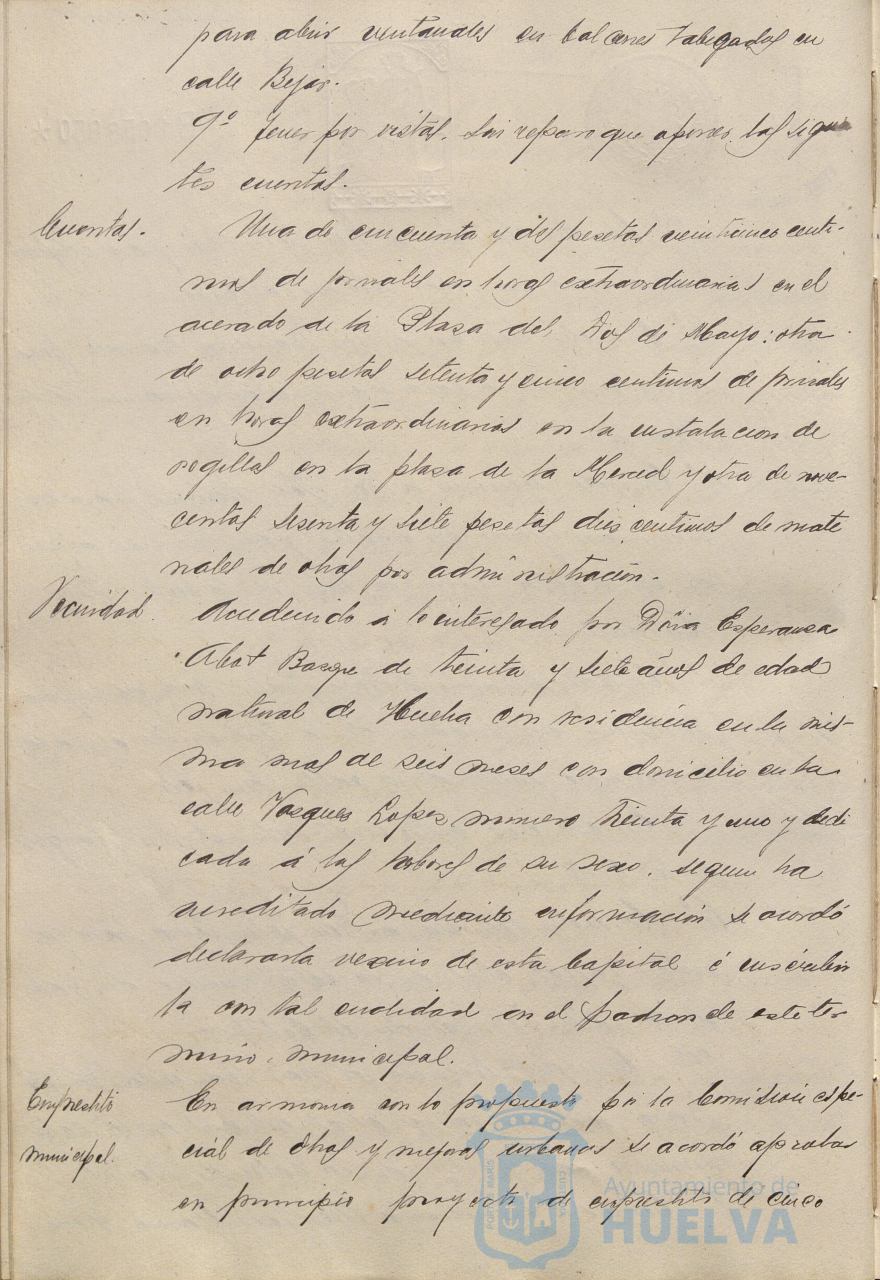 para abrir ventanales en balcones tabicados en
calle Bejar.
9º Tener por vistas, sin reparo que oponer, las siguien
tes cuentas.
Cuentas.
Una de cincuenta y dos pesetas veinticinco centi-
mos de jornales en horas extraordinarias en el
acerado de la Plaza del Dos de Mayo; otra
de ocho pesetas setenta y cinco centimos de jornales
en horas extraordinarias en la instalacion de
rogillas en la plaza de la Merced y otra de nove-
cientas sesenta y siete pesetas diez centimos de mate
riales de obras por administración.
Vecindad.
Accediendo á lo interesado por Dña Esperanza
Abot de treinta y siete años de edad
natural de Huelva con residencia en la mis-
ma mas de seis meses con domicilio en la
calle Vasquez Lopez numero treinta y uno y dedi
cada á las labores de su sexo, segun ha
acreditado mediante información se acordó
declararla vecino de esta Capital é inscribir
la con tal cualidad en el padron de este ter
mino municipal.
Empréstito
municipal.
En armonia con lo propuesto por la Comision espe-
cial de Obras y mejoras urbanas se acordó aprobar
en principio proyecto de emprestito de cinco
Ayuntamiento de
HUELVA